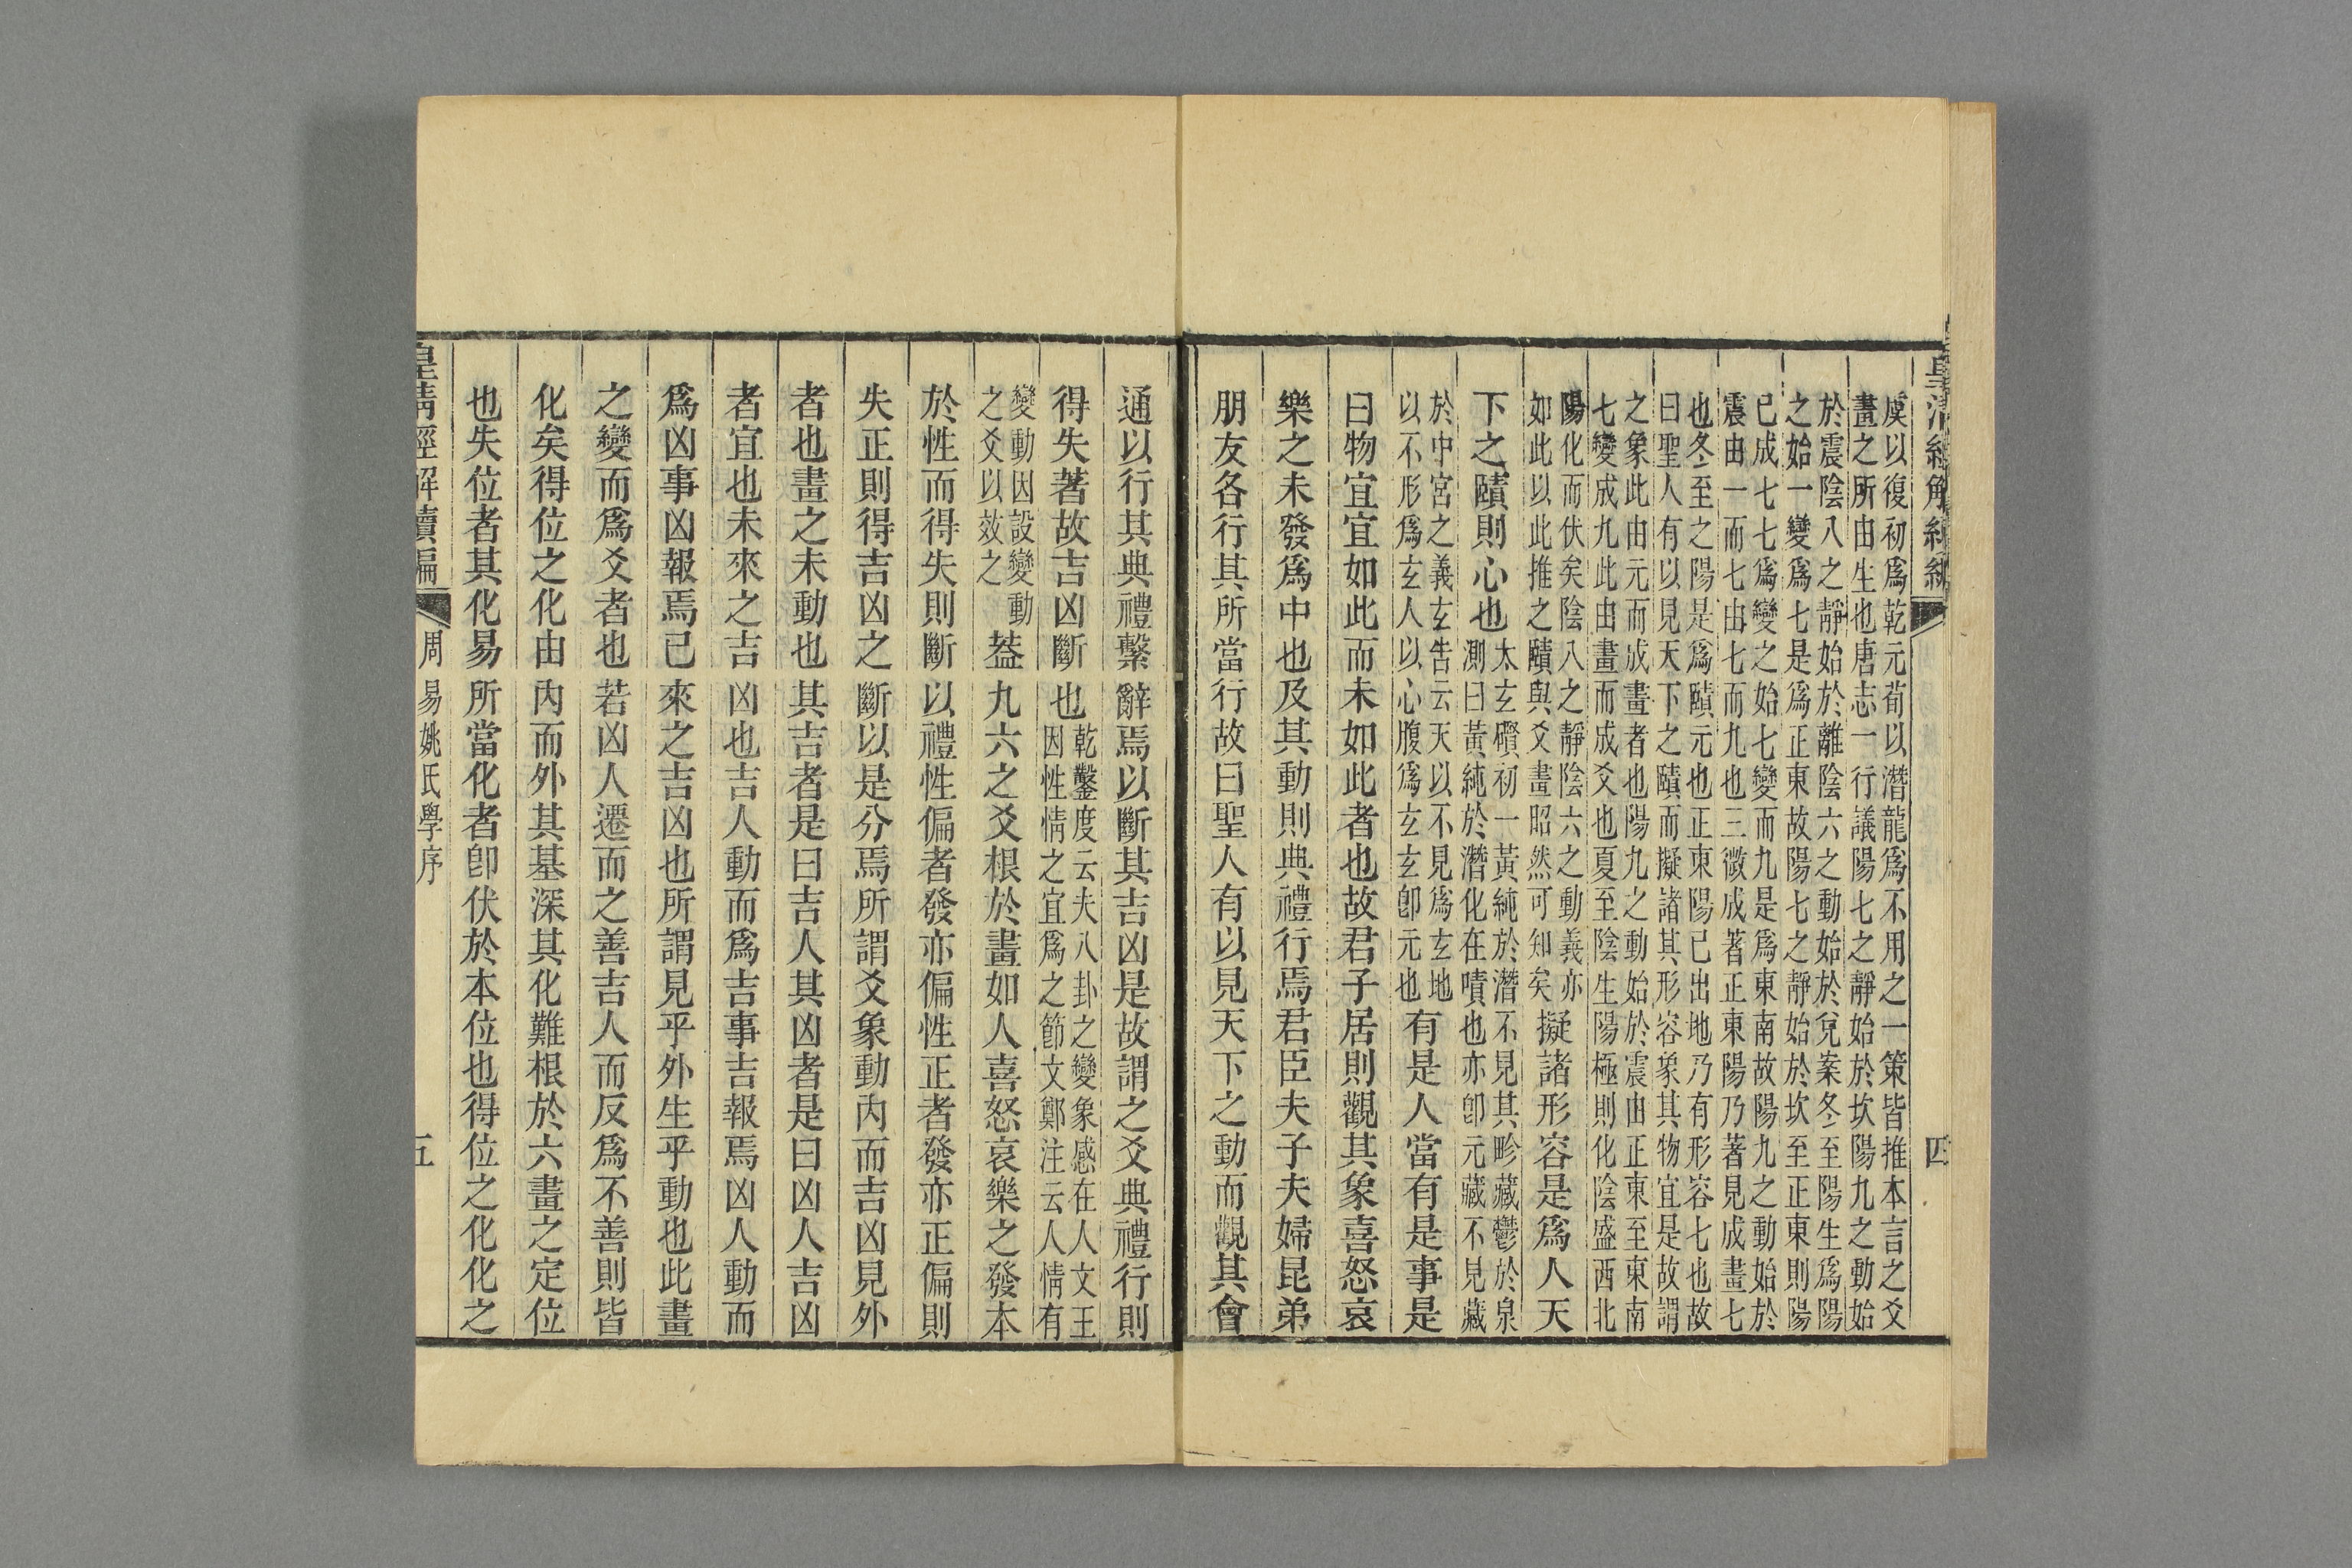 虞以復初爲乾元荀以潛龍爲不用之一策皆推本言之爻
畫之所由生也唐志一行議陽七之靜始於坎陽九之動始
於震陰八之靜始於離陰六之動始於兌案冬至陽生爲陽
之始一變爲七是爲正東故陽七之靜始於坎至正東則陽
已成七七爲變之始七變而九是爲東南故陽九之動始於
震由一而七由七而九也三微成著正東陽乃著見成畫七
也冬至之陽是爲賾元也正東陽已出地乃有形容七也故
曰聖人有以見天下之賾而擬諸其形容象其物宜是故謂
之象此由元而成畫者也陽九之動始於震由正東至東南
七變成九此由畫而成爻也夏至陰生陽極則化陰盛西北
陽化而伏矣陰八之靜陰六之動義亦
如此以此推之賾與爻畫昭然可知矣
擬諸形容是爲人天
下之賾則心也
太玄礥初一黃純於潛不見其畛藏鬱於泉
測曰黃純於潛化在嘖也亦卽元藏不見藏
於中宮之義玄告云天以不見爲玄地
以不形爲玄人以心腹爲玄玄卽元也
有是人當有是事是
曰物宜宜如此而未如此者也故君子居則觀其象喜怒哀
樂之未發爲中也及其動則典禮行焉君臣夫子夫婦昆弟
朋友各行其所當行故曰聖人有以見天下之動而觀其會
四
通以行其典禮繫辭焉以斷其吉凶是故謂之爻典禮行則
得失著故吉凶斷也
乾鑿度云夫八卦之變象感在人文王
因性情之宜爲之節文鄭注云人情有
變動因設變動
之爻以效之
葢九六之爻根於畫如人喜怒哀樂之發本
於性而得失則斷以禮性偏者發亦偏性正者發亦正偏則
失正則得吉凶之斷以是分焉所謂爻象動內而吉凶見外
者也畫之未動也其吉者是曰吉人其凶者是曰凶人吉凶
者宜也未來之吉凶也吉人動而爲吉事吉報焉凶人動而
爲凶事凶報焉已來之吉凶也所謂見乎外生乎動也此畫
之變而爲爻者也若凶人遷而之善吉人而反爲不善則皆
化矣得位之化由內而外其基深其化難根於六畫之定位
也失位者其化易所當化者卽伏於本位也得位之化化之
皇清經解續編
周易姚氏學序
五